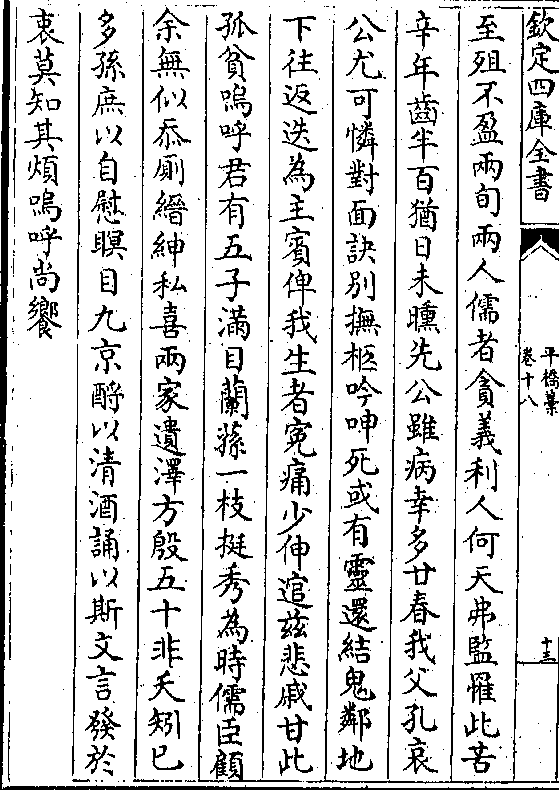 欽定四庫全書
平橋藁
卷十八
十三
至殂不盈兩旬兩人儒者貪義利人何天弗監罹此苦
辛年齒半百猶日未曛先公雖病幸多廿春我父孔哀
公尤可憐對面訣别撫柩吟呻死或有靈還結鬼鄰地
下往返迭為主賓俾我生者寃痛少伸逭兹悲戚甘此
孤貧嗚呼君有五子滿目蘭蓀一枝挺秀為時儒臣顧
余無似忝厠縉紳私喜兩家遺澤方殷五十非夭矧已
多孫庶以自慰瞑目九京酹以清酒誦以斯文言發於
衷莫知其煩嗚呼尚饗